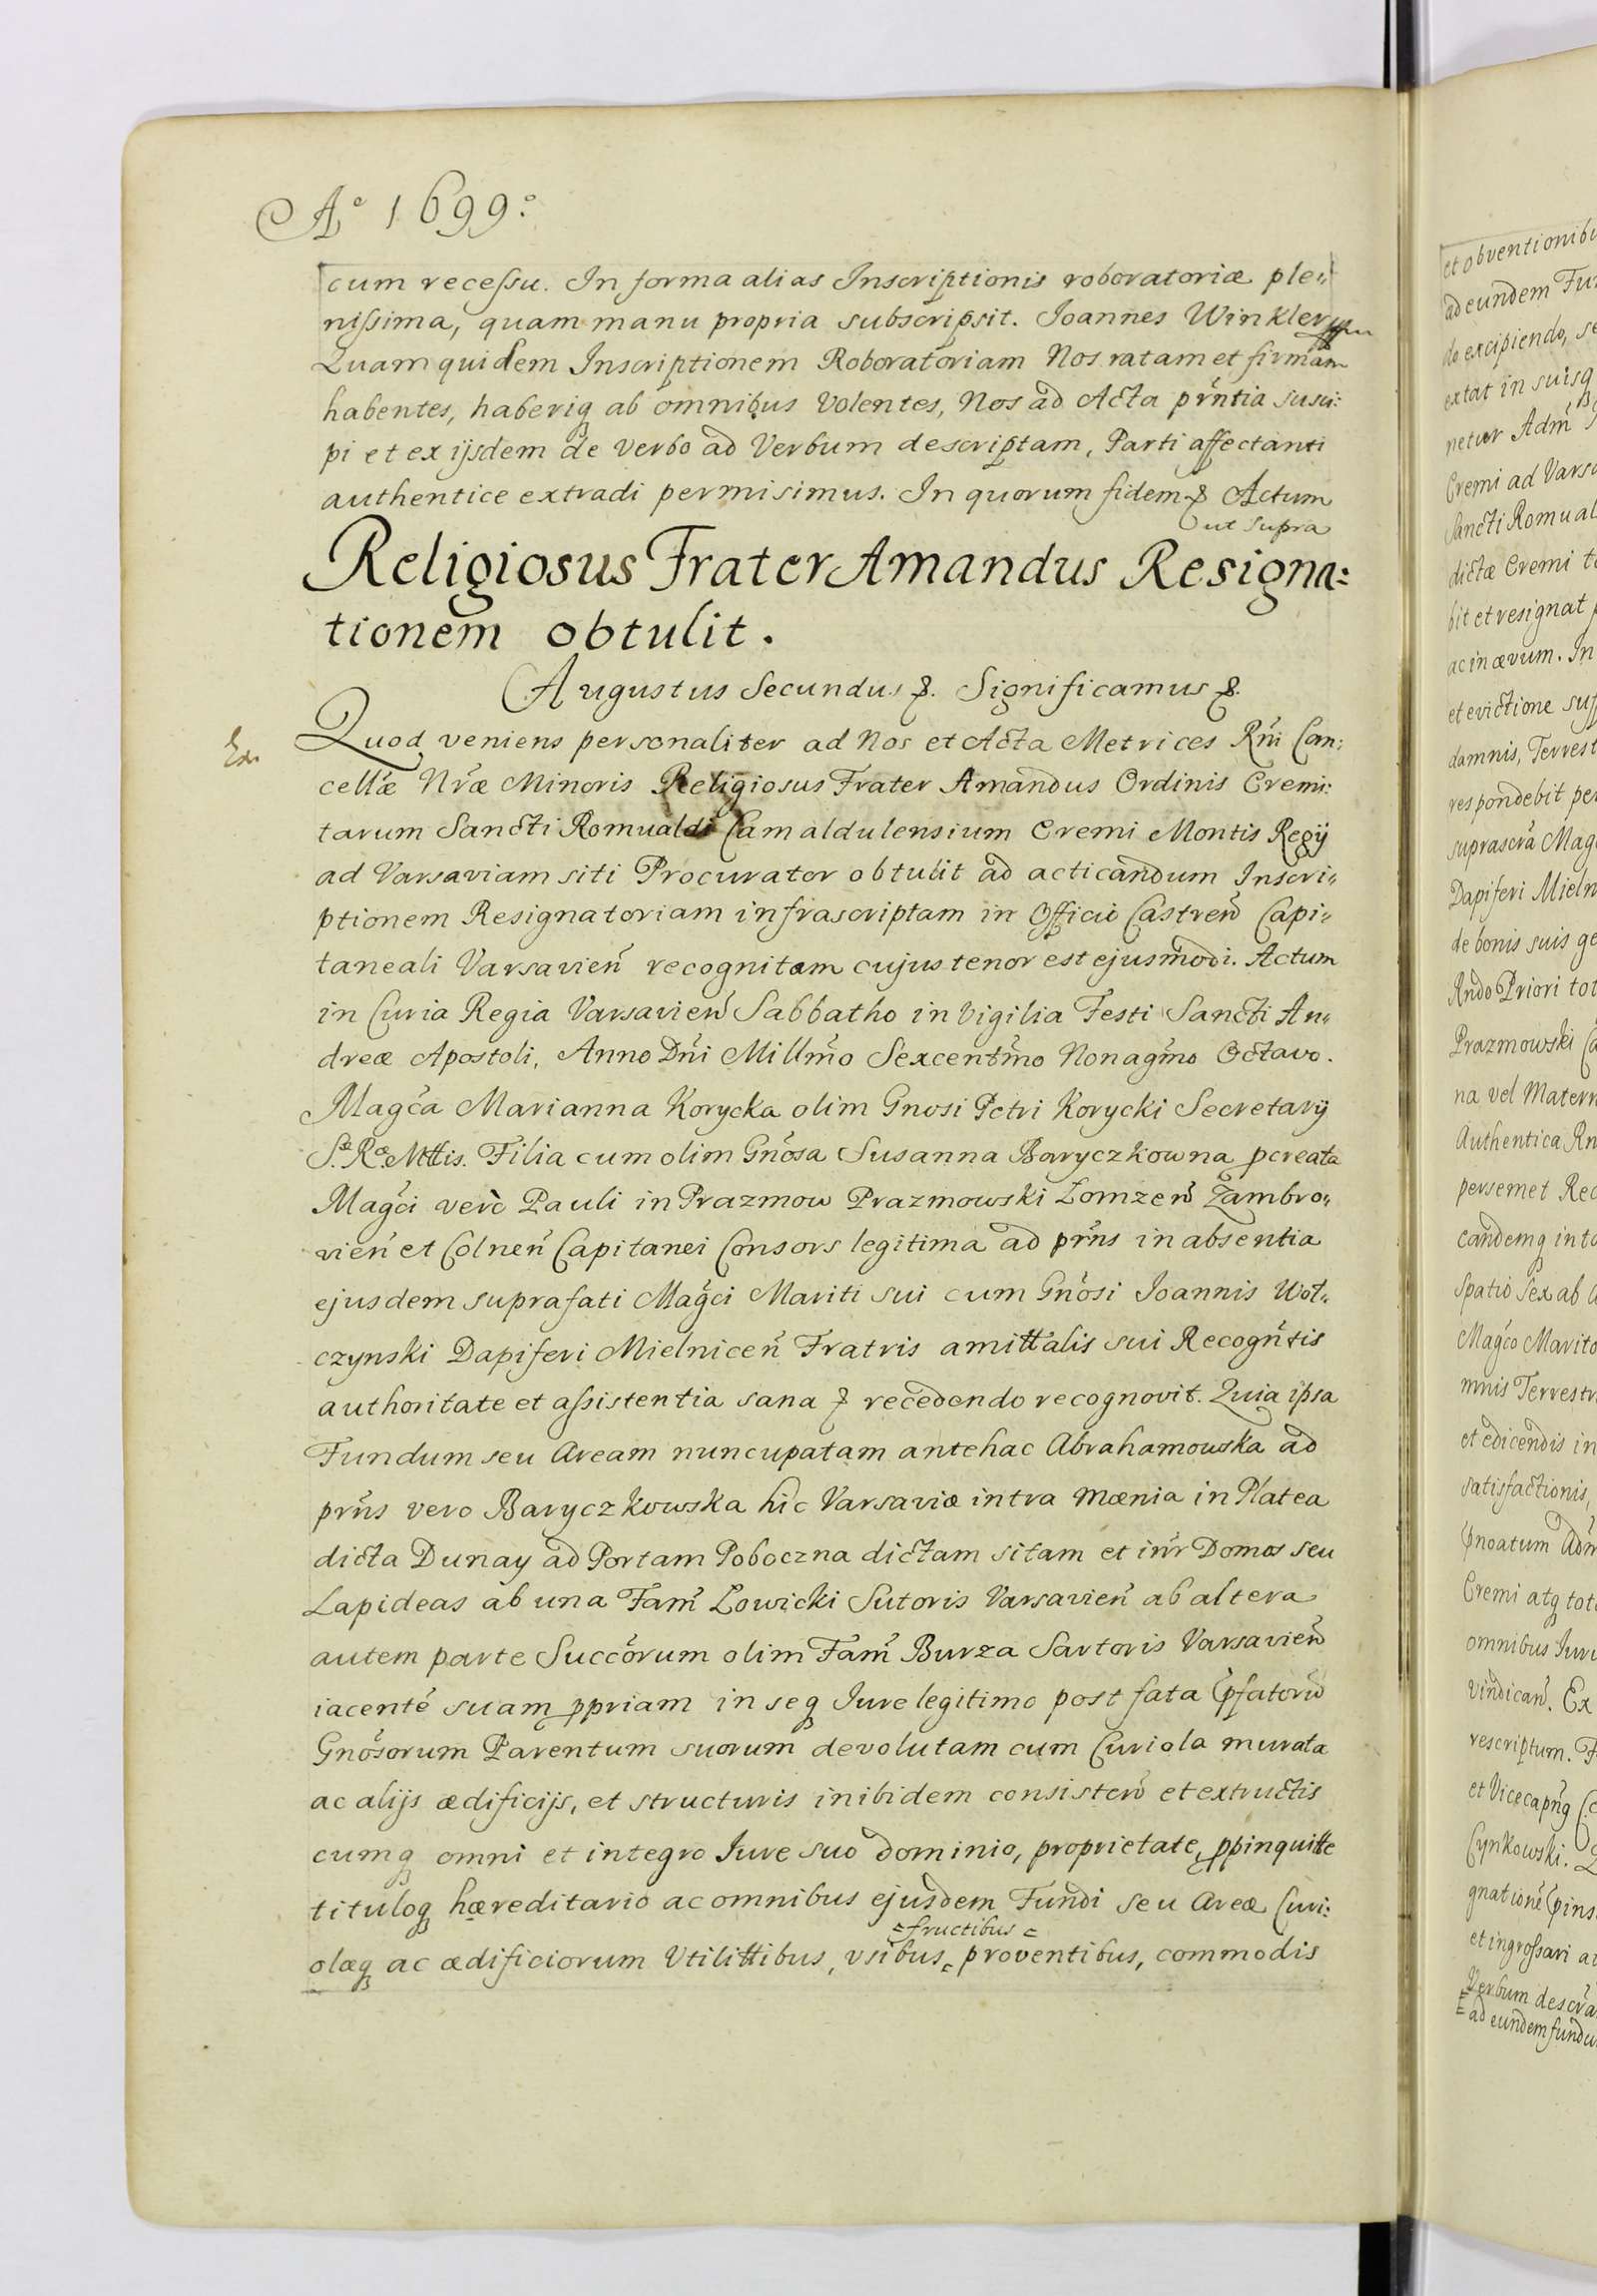 Aº 1699º
cum recessu. In forma alias Inscriptionis roboratoriæ ple„
nissima, quam manu propria subscripsit. Joannes Winkler
Quam quidem Inscriptionem Roboratoriam Nos ratam et firmam
habentes, haberiq ab omnibus Volentes, Nos ad Acta prńtia susci:
pi et ex ijsdem de Verbo ad Verbum descriptam, Parti affectanti
authentice extradi permisimus. In quorum fidem & Actum
ut supra
Religiosus Frater Amandus Resigna:
tionem obtulit.
Augustus Secundus &. Significamus &.
Quod veniens personaliter ad Nos et Acta Metrices Rńi Can:
cellæ Nræ Minoris Religiosus Frater Amandus Ordinis Eremi:
tarum Sancti Romualdi Camaldulensium Eremi Montis Regij
ad Varsaviam siti Procurator obtulit ad acticandum Inscri„
ptionem Resignatoriam infrascriptam in Officio Castreń Capi„
taneali Varsavień recognitam cujus tenor est ejusmodi. Actum
in Curia Regia Varsavień Sabbatho in Vigilia Festi Sancti An„
dreæ Apostoli, Anno Dńi Millḿo Sexcentḿo Nonagḿo Octavo.
Magća Marianna Korycka olim Gnosi Petri Korycki Secretarij
S.æ R.æ Mttis. Filia cum olim Gnósa Susanna Baryczkowna pcreata
Magći vero Pauli in Prazmow Prazmowski Lomzeń Zambro„
vień et Colneń Capitanei Consors legitima ad prńs in absentia
ejusdem suprafati Magći Mariti sui cum Gnósi Joannis Wol„
czynski Dapiferi Mielniceń Fratris amittalis sui Recogńtis
authoritate et assistentia sana & recedendo recognovit. Quia ipsa
Fundum seu Aream nuncupatam antehac Abrahamowska ad
prńs vero Baryczkowska hic Varsaviæ intra Mænia in Platea
dicta Dunay ad Portam Poboczna dictam sitam et inŕ Domos seu
Lapideas ab una Fam̃ Lowicki Sutoris Varsavień ab altera
autem parte Succórum olim Fam̃ Burza Sartoris Varsavień
iacenté suam ppriam in seq Jure legitimo post fata pfatorũ
Gnósorum Parentum suorum devolutam cum Curiola murata
ac alijs ædificijs, et structuris inibidem consisteń et extructis
cumq omni et integro Jure suo dominio, proprietate, ppinquitte
tituloq hæreditario ac omnibus ejusdem Fundi seu Areæ Curi:
=fructibus=
olæq ac ædificiorum Utilittibus, vsibus, proventibus, commodis
et obventionibu
ad eundem Fun
do excipiendo, se
extat in suisq
netur Adm̃
Eremi ad Varsa
Sancti Romual
dictæ Eremi to
bit et resignat p
ac in ævum. In
et evictione suff
damnis, Terrest
respondebit per
suprascrá Mag
Dapiferi Mieln
de bonis suis ge
Rndo Priori tot
Prazmowski Ca
na vel Matern
Authentica Rn
persemet Rec
eandemq in to
Spatio Sex ab a
Magćo Marito
mnis Terrestr
et edicendis in
satisfactionis,
Adm
Eremi atq tot
omnibus Juri
Vindicań. Ex
rescriptum. F
et Vicecapńg C
Cynkowski. Q
gnationé pins
et ingrossari a
Verbum descrá
ad eundem fundu